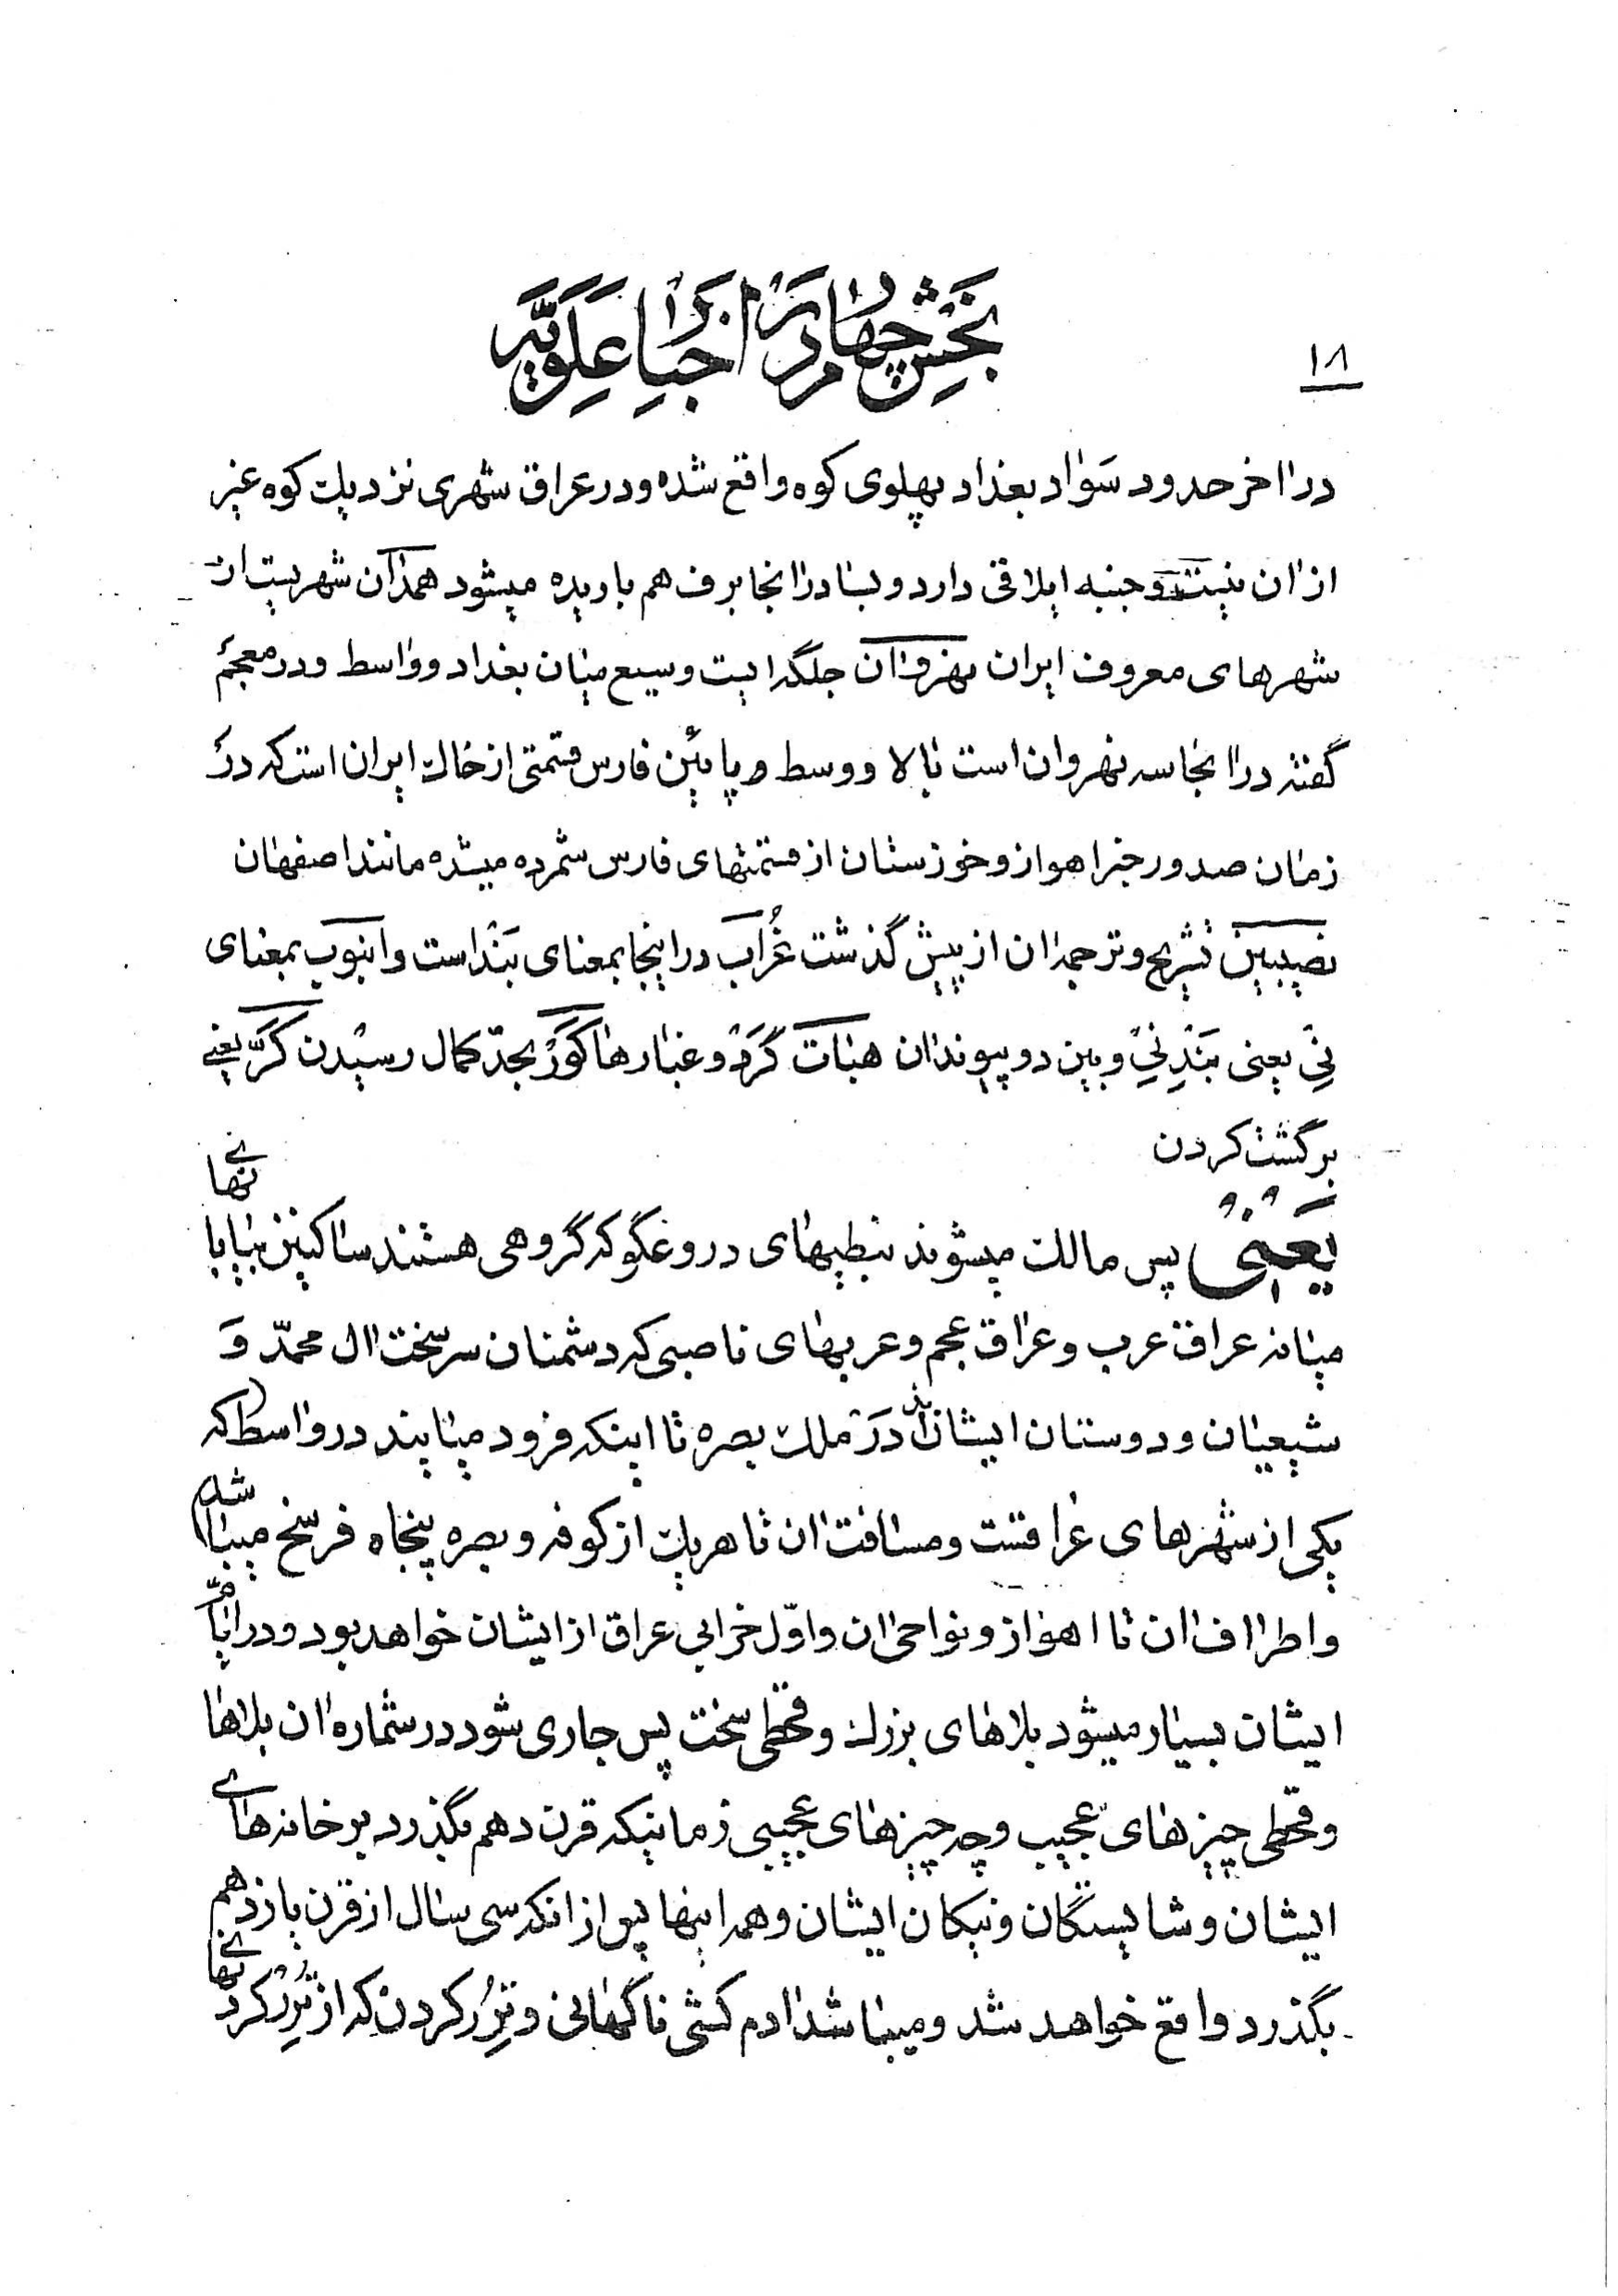 ۱۸
بخش چهارم در اخبار علویه
در اخر حدود سَواد بغداد پهلوی کوه واقع شده و در عراق شهری نزدیک کوه غیر
از ان نیست و جنبه ایلاقی دارد و بسا در انجا برف هم باریده میشود همدان شهریست از
شهرهای معروف ایران نهروان جلگه ایست وسیع میان بغداد و واسط و در معجم
گفته در انجا سه نهروان است بالا و وسط و پایین فارس قسمتی از خاک ایران است که در
زمان صدور خبر اهواز و خوزستان از قسمتهای فارس شمرده میشده مانند اصفهان
نصیبین تشریح و ترجمه ان از پیش گذشت غُراب در اینجا بمعنای بَند است و انبوب بمعنای
نِی یعنی بَندِ نِی و بین دو پیوند ان هبات گَرد و غبارها کَوَر بحدّ کمال رسیدن کَرَّ یعنی
برگشت کردن
یَعنی پس مالک میشوند نبطیهای دروغگو که گروهی هستند ساکنین بیابانهای
میانه عراق عرب و عراق عجم و عربهای ناصبی که دشمنان سرسخت ال محمّد وَ
شیعیان و دوستان ایشان‌اند دَر ملک بصره تا اینکه فرود میایند در واسط که
یکی از شهرهای عراقست و مسافت ان تا هر یک از کوفه و بصره پنجاه فرسخ میباشد
و اطراف ان تا اهواز و نواحی ان و اوّل خرابی عراق از ایشان خواهد بود و در ایّام
ایشان بسیار میشود بلاهای بزرگ و قحطی سخت پس جاری شود در شماره ان بلاها
و قحطی چیزهای عجیب و چه چیزهای عجیبی زمانیکه قرن دهم بگذرد بر خانه‌های
ایشان و شایستگان و نیکان ایشان و همه اینها پس از انکه سی سال از قرن یازدهم
بگذرد واقع خواهد شد و میباشد ادم کشی ناگهانی و تِرُر کردن که از تِرُر کردنهای